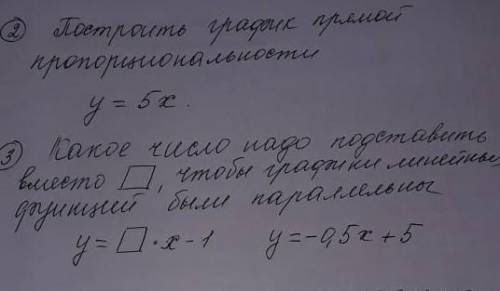 ② Построить график прямой
пропорциональности
y = 5x.
③ Какое число надо подставить
вместо □, чтобы графики линейных
функций были параллельны
y = □ · x - 1 y = -0,5x + 5